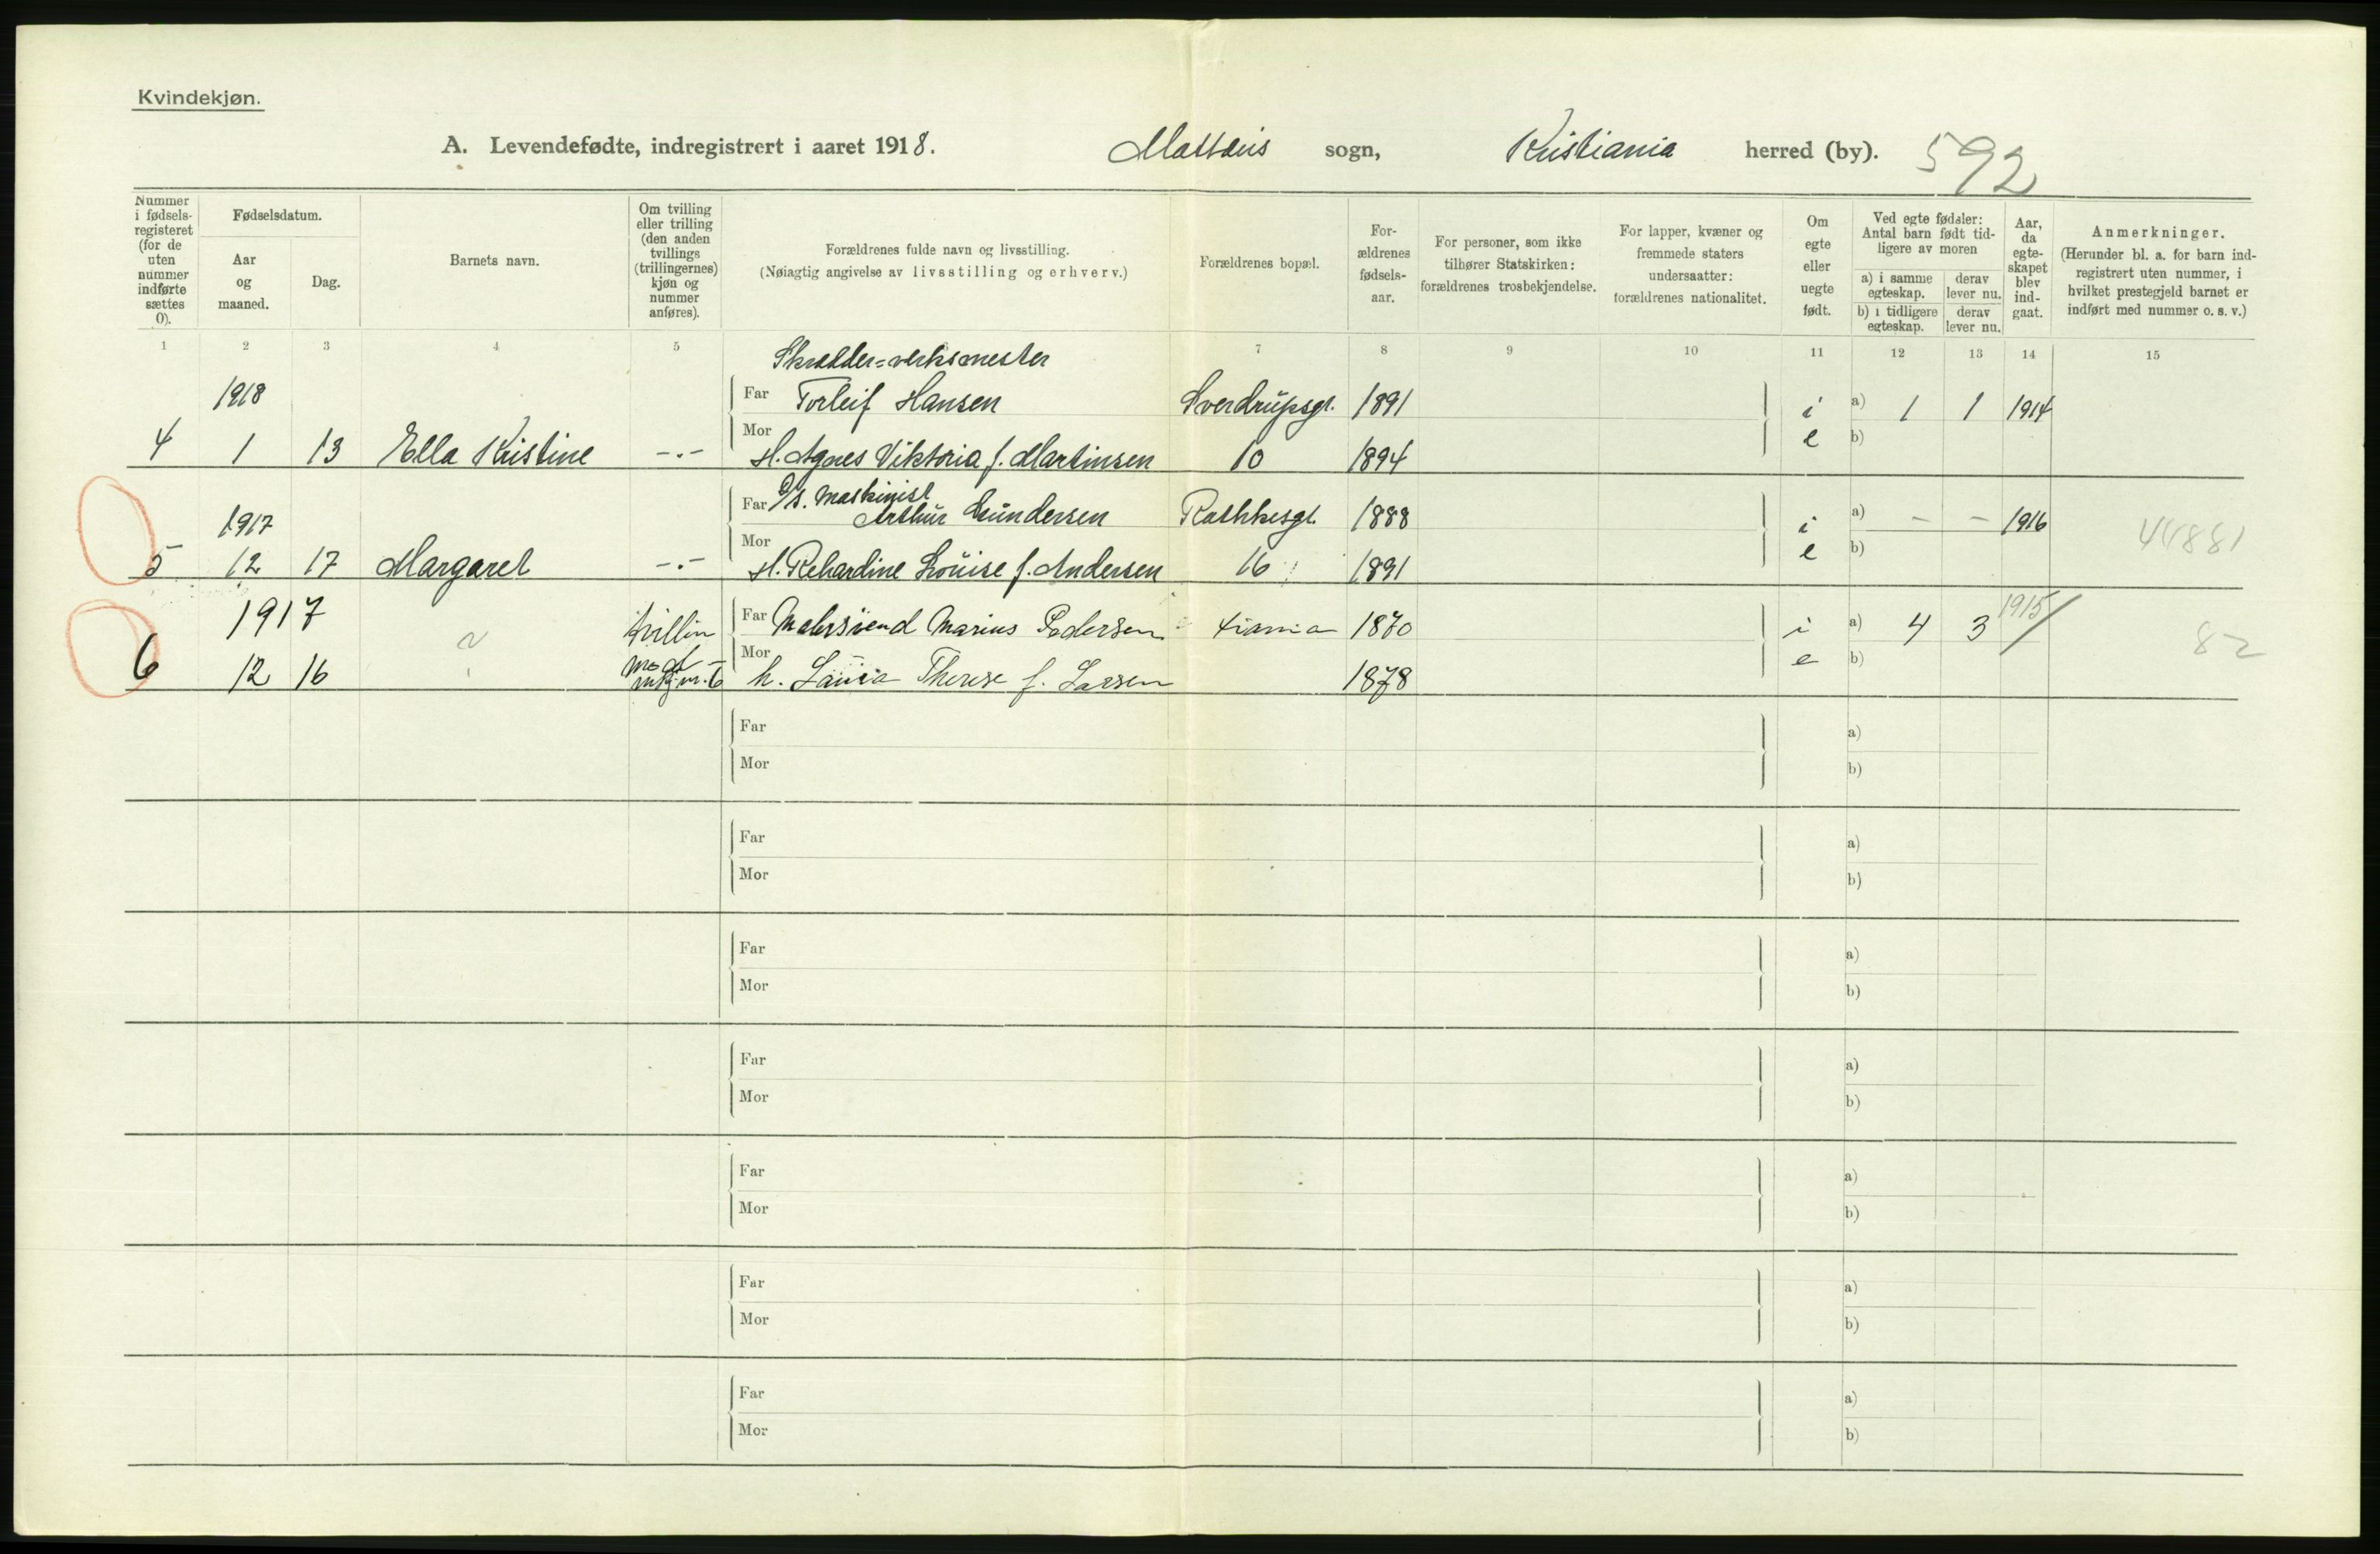 Kvindekjøn.
A. Levendefødte, indregistrert i aaret 1918. Mattæus sogn, Kristiania herred (by). 592
Nummer i fødsels-registeret (for de uten nummer indførte sættes 0).
Fødselsdatum.
Aar og maaned.
Dag.
Barnets navn.
Om tvilling eller trilling (den anden tvillings (trillingernes) kjøn og nummer anføres).
Forældrenes fulde navn og livsstilling.
(Nøiagtig angivelse av livsstilling og erhverv.)
Forældrenes bopæl.
For-ældrenes fødsels-aar.
For personer, som ikke tilhører Statskirken: forældrenes trosbekjendelse.
For lapper, kvæner og fremmede staters undersaatter: forældrenes nationalitet.
Om egte eller uegte født.
Ved egte fødsler: Antal barn født tid-ligere av moren
a) i samme egteskap. derav lever nu.
b) i tidligere egteskap. derav lever nu.
Aar, da egte-skapet blev ind-gaat.
Anmerkninger.
(Herunder bl. a. for barn ind-registrert uten nummer, i hvilket prestegjeld barnet er indført med nummer o. s. v.)
1 2 3 4 5 7 8 9 10 11 12 13 14 15
Skrædder=verksmester
1918 Far Torleif Hansen Sverdrupsgt. 1891 i a) 1 1 1914
4 1 13 Ella Kristine -.- Mor H. Agnes Viktoria f. Martinsen 10 1894 e b)
Maskinist
1917 Far Arthur Gundersen Rathkesgt. 1888 i a) - - 1916 44881
5 12 17 Margaret -.- Mor H. Rehardine Louise f. Andersen 16 1891 e b)
1917 tvillin Far Marius Pedersen Xiania 1870 i a) 4 3 1915 82
6 12 16 Mor h. Laura Therese f. Larsen 1878 e b)
Far a)
Mor b)
Far a)
Mor b)
Far a)
Mor b)
Far a)
Mor b)
Far a)
Mor b)
Far a)
Mor b)
Far a)
Mor b)